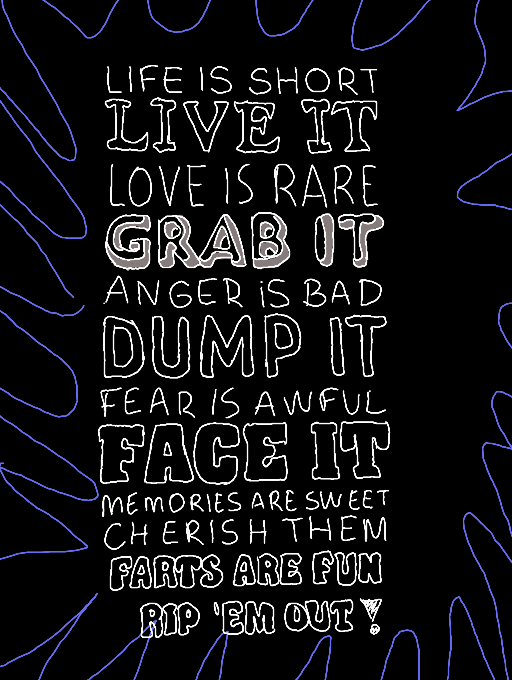 LIFE IS SHORT
LIVE IT
LOVE IS RARE
GRAB IT
ANGER iS BAD
DUMP IT
FEAR IS AWFUL
FACE IT
MEMORIES ARE SWEET
CHERISH THEM
FARTS ARE FUN
RIP 'EM OUT!